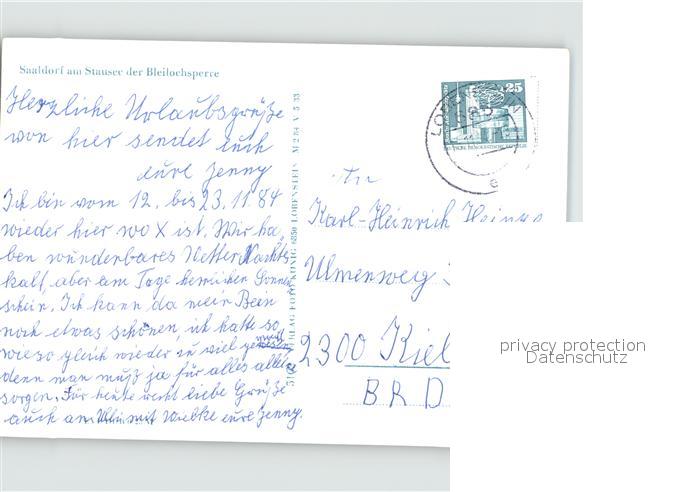 Saaldorf am Stausee der Bleilochsperre
Herzliche Urlaubsgrüße
von hier sendet euch
eure Jenny
Ich bin vom 12. bis 23.11.84
wieder hier wo X ist. Wir ha,
ben wunderbares Wetter Nachts
kalt, aber am Tage herrlichen Sonnen
schein. Ich kann da mein Bein
noch etwas schonen, ich hatte so,
wieso gleich wieder zu viel
denn man muß ja für alles allein
sorgen. Für heute recht liebe Grüße
auch an Uli mit Wiebke eure Jenny.
VERLAG FOTO KÖNIG 6850 LOBENSTEIN M 2/84 V 5 33
25
DEUTSCHE DEMOKRATISCHE REPUBLIK
An
Karl-Heinrich
Ulmenweg
2300 Kiel
BRD
privacy protection
Datenschutz